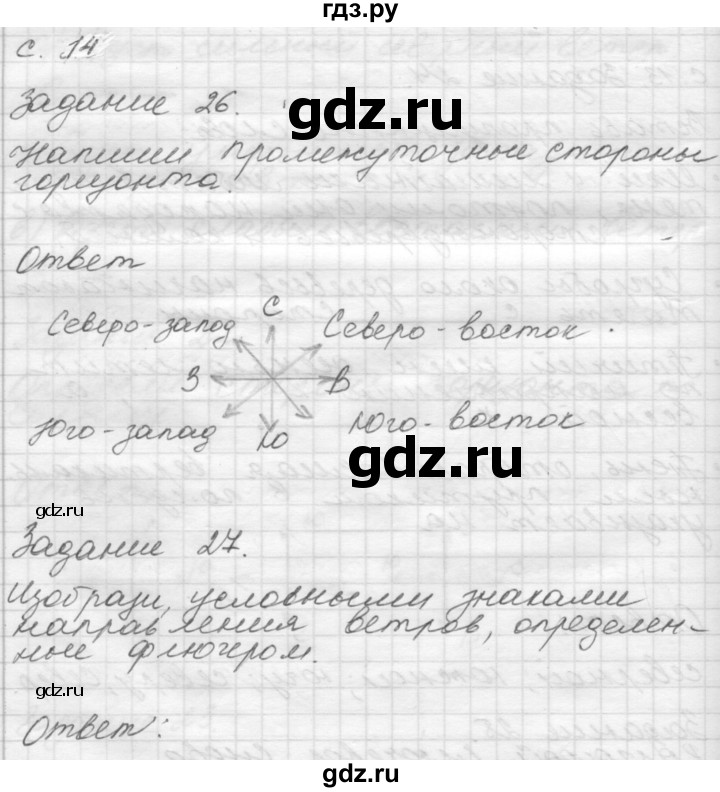 гдз.ру
с. 14
Задание 26.
gdz.ru
Напиши промежуточные стороны
горизонта.
Ответ
С
Северо-запад Северо-восток.
З В
Юго-запад Ю Юго-восток
gdz.ru
gdz.ru
Задание 27.
Изобрази условными знаками
направления ветров, определен-
ные флюгером.
gdz.ru
Ответ:
gdz.ru